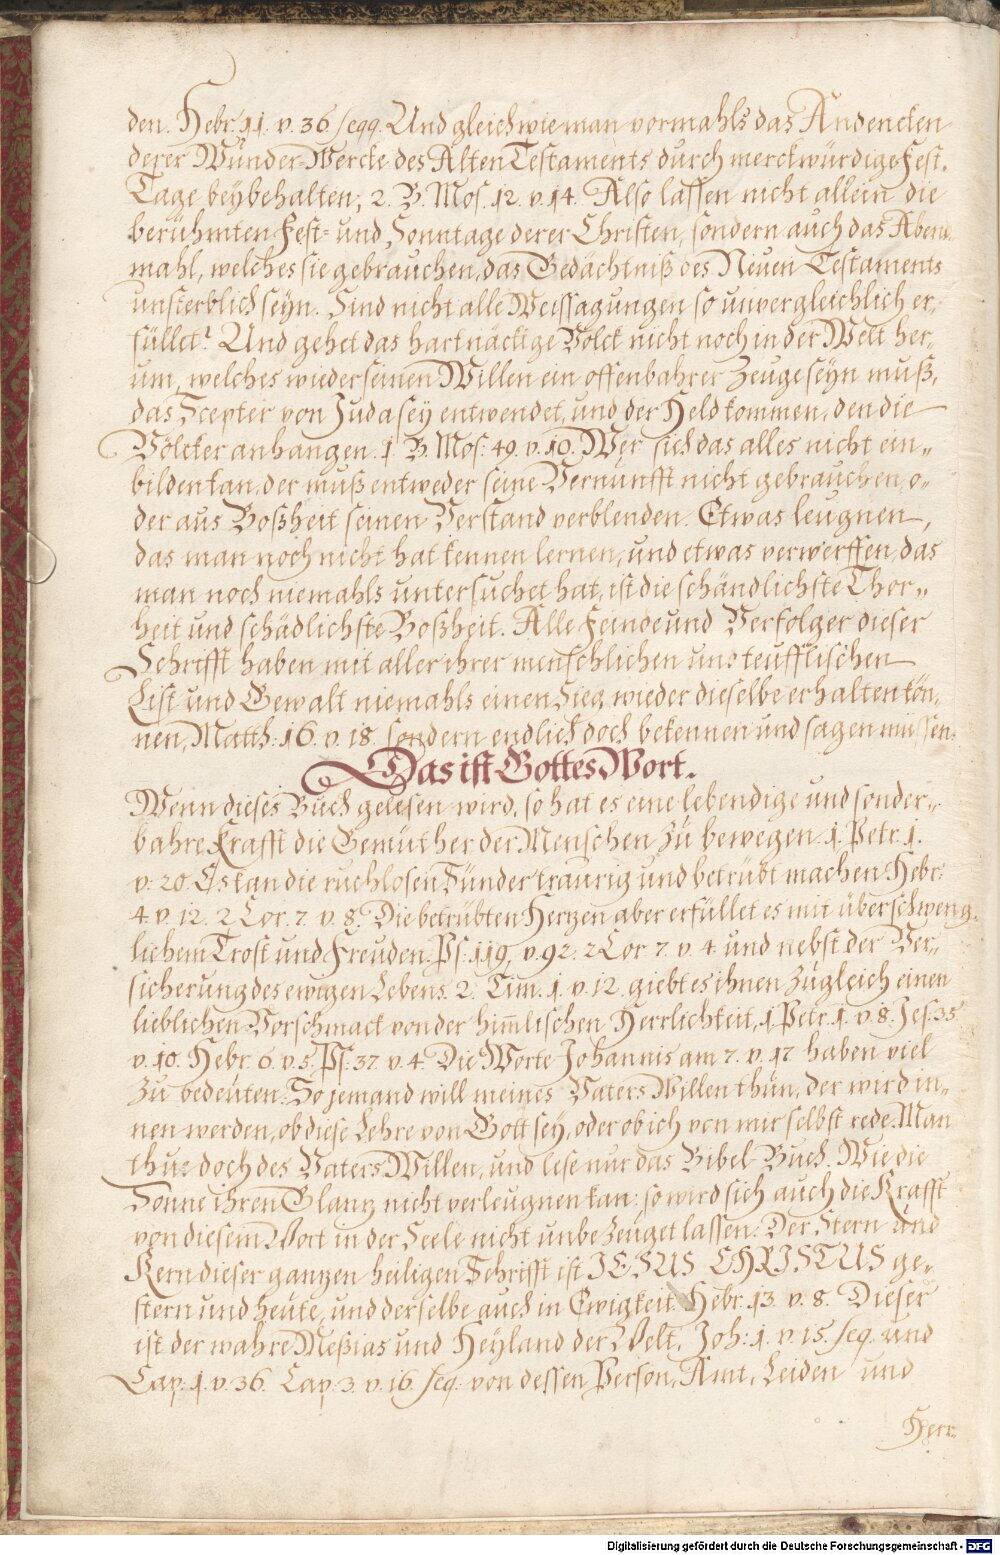 den. Hebr. 11. v. 36. seqq. Und gleich wie man vormahls das Andencken
derer Wunder-Wercke des Alten Testaments durch merckwürdige Fest-
Tage beybehalten; 2. B. Mos. 12. v. 14. Also lassen nicht allein die
berühmten Fest- und Sonntage derer Christen, sondern auch das Abend-
mahl, welches sie gebrauchen, das Gedächtniß des Neuen Testaments
unsterblich seyn. Sind nicht alle Weissagungen so unvergleichlich er-
füllet? Und gehet das hartnäckige Volck nicht noch in der Welt her-
um, welches wieder seinen Willen ein offenbahrer Zeuge seyn muß,
das Scepter von Juda sey entwendet, und der Held kommen, den die
Völcker anhangen. 1. B. Mos. 49. v. 10. Wer sich das alles nicht ein-
bilden kan, der muß entweder seine Vernunfft nicht gebrauchen, o-
der aus Boßheit seinen Verstand verblenden. Etwas leugnen,
das man noch nicht hat kennen lernen, und etwas verwerffen, das
man noch niemahls untersuchet hat, ist die schändlichste Thor-
heit und schädlichste Boßheit. Alle Feinde und Verfolger dieser
Schrifft haben mit aller ihrer menschlichen und teufflischen
List und Gewalt niemahls einen Sieg wieder dieselbe erhalten kön-
nen, Matth. 16. v. 18. sondern endlich doch bekennen und sagen müssen:
Das ist Gottes Wort.
Wenn dieses Buch gelesen wird, so hat es eine lebendige und sonder-
bahre Krafft die Gemüther der Menschen zu bewegen. 1. Petr. 1.
v. 20. Es kan die ruchlosen Sünder traurig und betrübt machen Hebr.
4. v. 12. 2 Cor. 7. v. 8. Die betrübten Herzen aber erfüllet es mit überschweng-
lichem Trost und Freuden. Ps. 119. v. 92. 2 Cor. 7. v. 4. und nebst der Ver-
sicherung des ewigen Lebens. 2. Tim. 1. v. 12. giebt es ihnen zugleich einen
lieblichen Vorschmack von der him̄lischen Herrlichkeit, 1. Petr. 1. v. 8. Jes. 35.
v. 10. Hebr. 6. v. 5. Ps. 37. v. 4. Die Worte Johannis am 7. v. 17. haben viel
zu bedeuten: So jemand will meines Vaters Willen thun, der wird in-
nen werden, ob diese Lehre von Gott sey, oder ob ich von mir selbst rede. Man
thue doch des Vaters Willen, und lese nur das Bibel-Buch. Wie die
Sonne ihren Glantz nicht verleugnen kan: so wird sich auch die Krafft
von diesem Wort in der Seele nicht unbezeuget lassen. Der Stern und
Kern dieser gantzen heiligen Schrifft ist JESUS CHRISTUS ge-
stern und heute, und derselbe auch in Ewigkeit. Hebr. 13. v. 8. Dieser
ist der wahre Meßias und Heyland der Welt. Joh: 1. v. 15. seq. und
Cap. 1. v. 36. Cap. 3. v. 16. seq. von dessen Person, Amt, Leiden und
Herr-
Digitalisierung gefördert durch die Deutsche Forschungsgemeinschaft - DFG